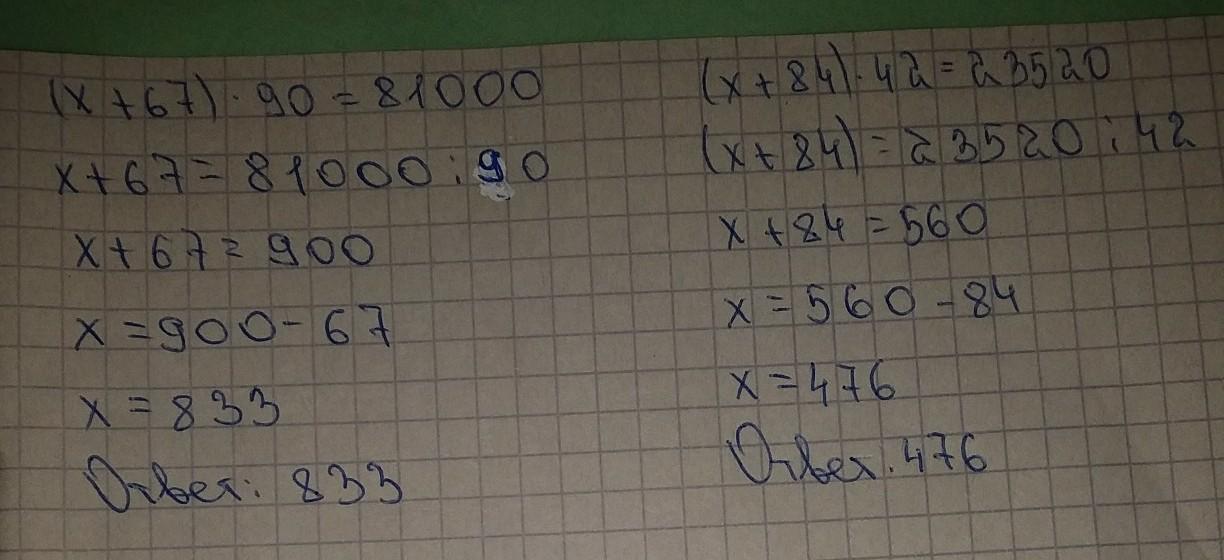 (x+67)·90=81000
x+67=81000:90
x+67=900
x=900-67
x=833
Ответ: 833
(x+84)·42=23520
(x+84)=23520:42
x+84=560
x=560-84
x=476
Ответ. 476